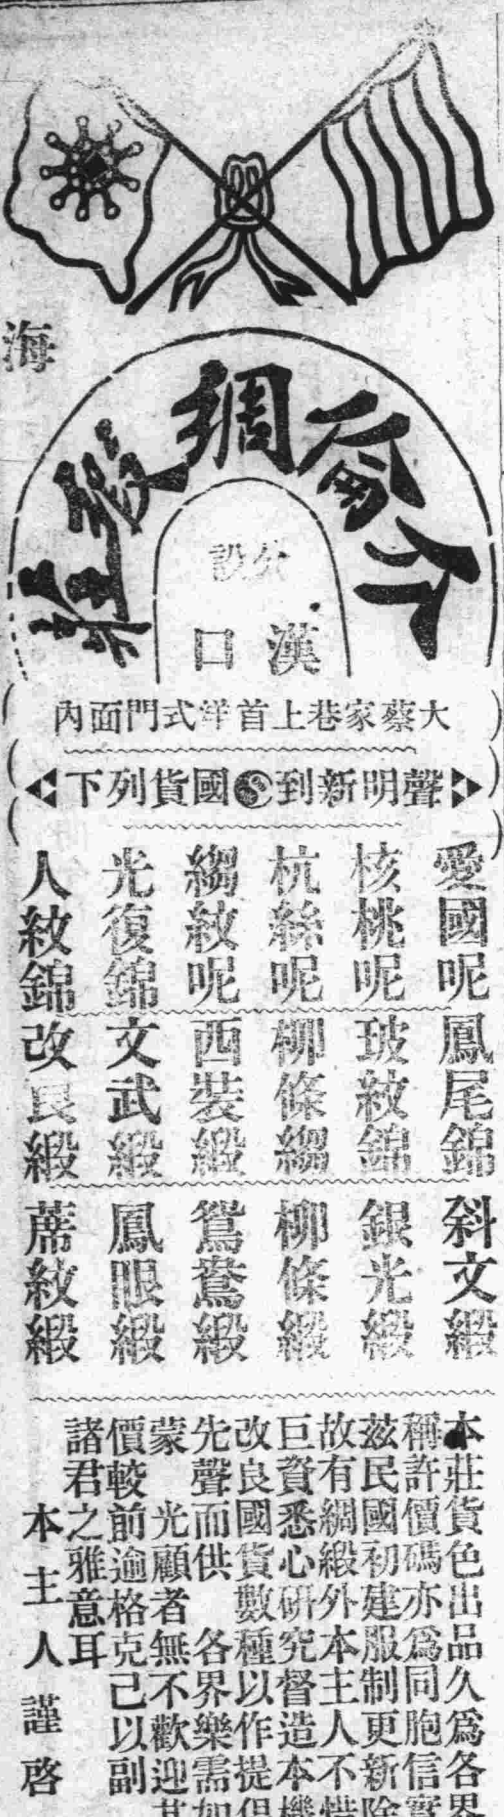 海
介倫綢緞莊
分設
漢口
大蔡家巷上首洋式門面內
聲明新到國貨列下
愛國呢
核桃呢
杭絲呢
縐紋呢
光復錦
人紋錦
鳳尾錦
玻紋錦
柳條縐
西裝緞
文武緞
改良緞
斜文緞
銀光緞
柳條緞
鴛鴦緞
鳳眼緞
蓆紋緞
本莊貨色出品久爲各界
稱許價碼亦爲同胞信實
茲民國初建服制更新除
故有綢緞外本主人不惜
巨資悉心研究督造本機
改良國貨數種以作提倡
先聲而供 各界樂需如
蒙 光顧者無不歡迎其
價較前逾格克己以副
諸君之雅意耳
本主人謹啓